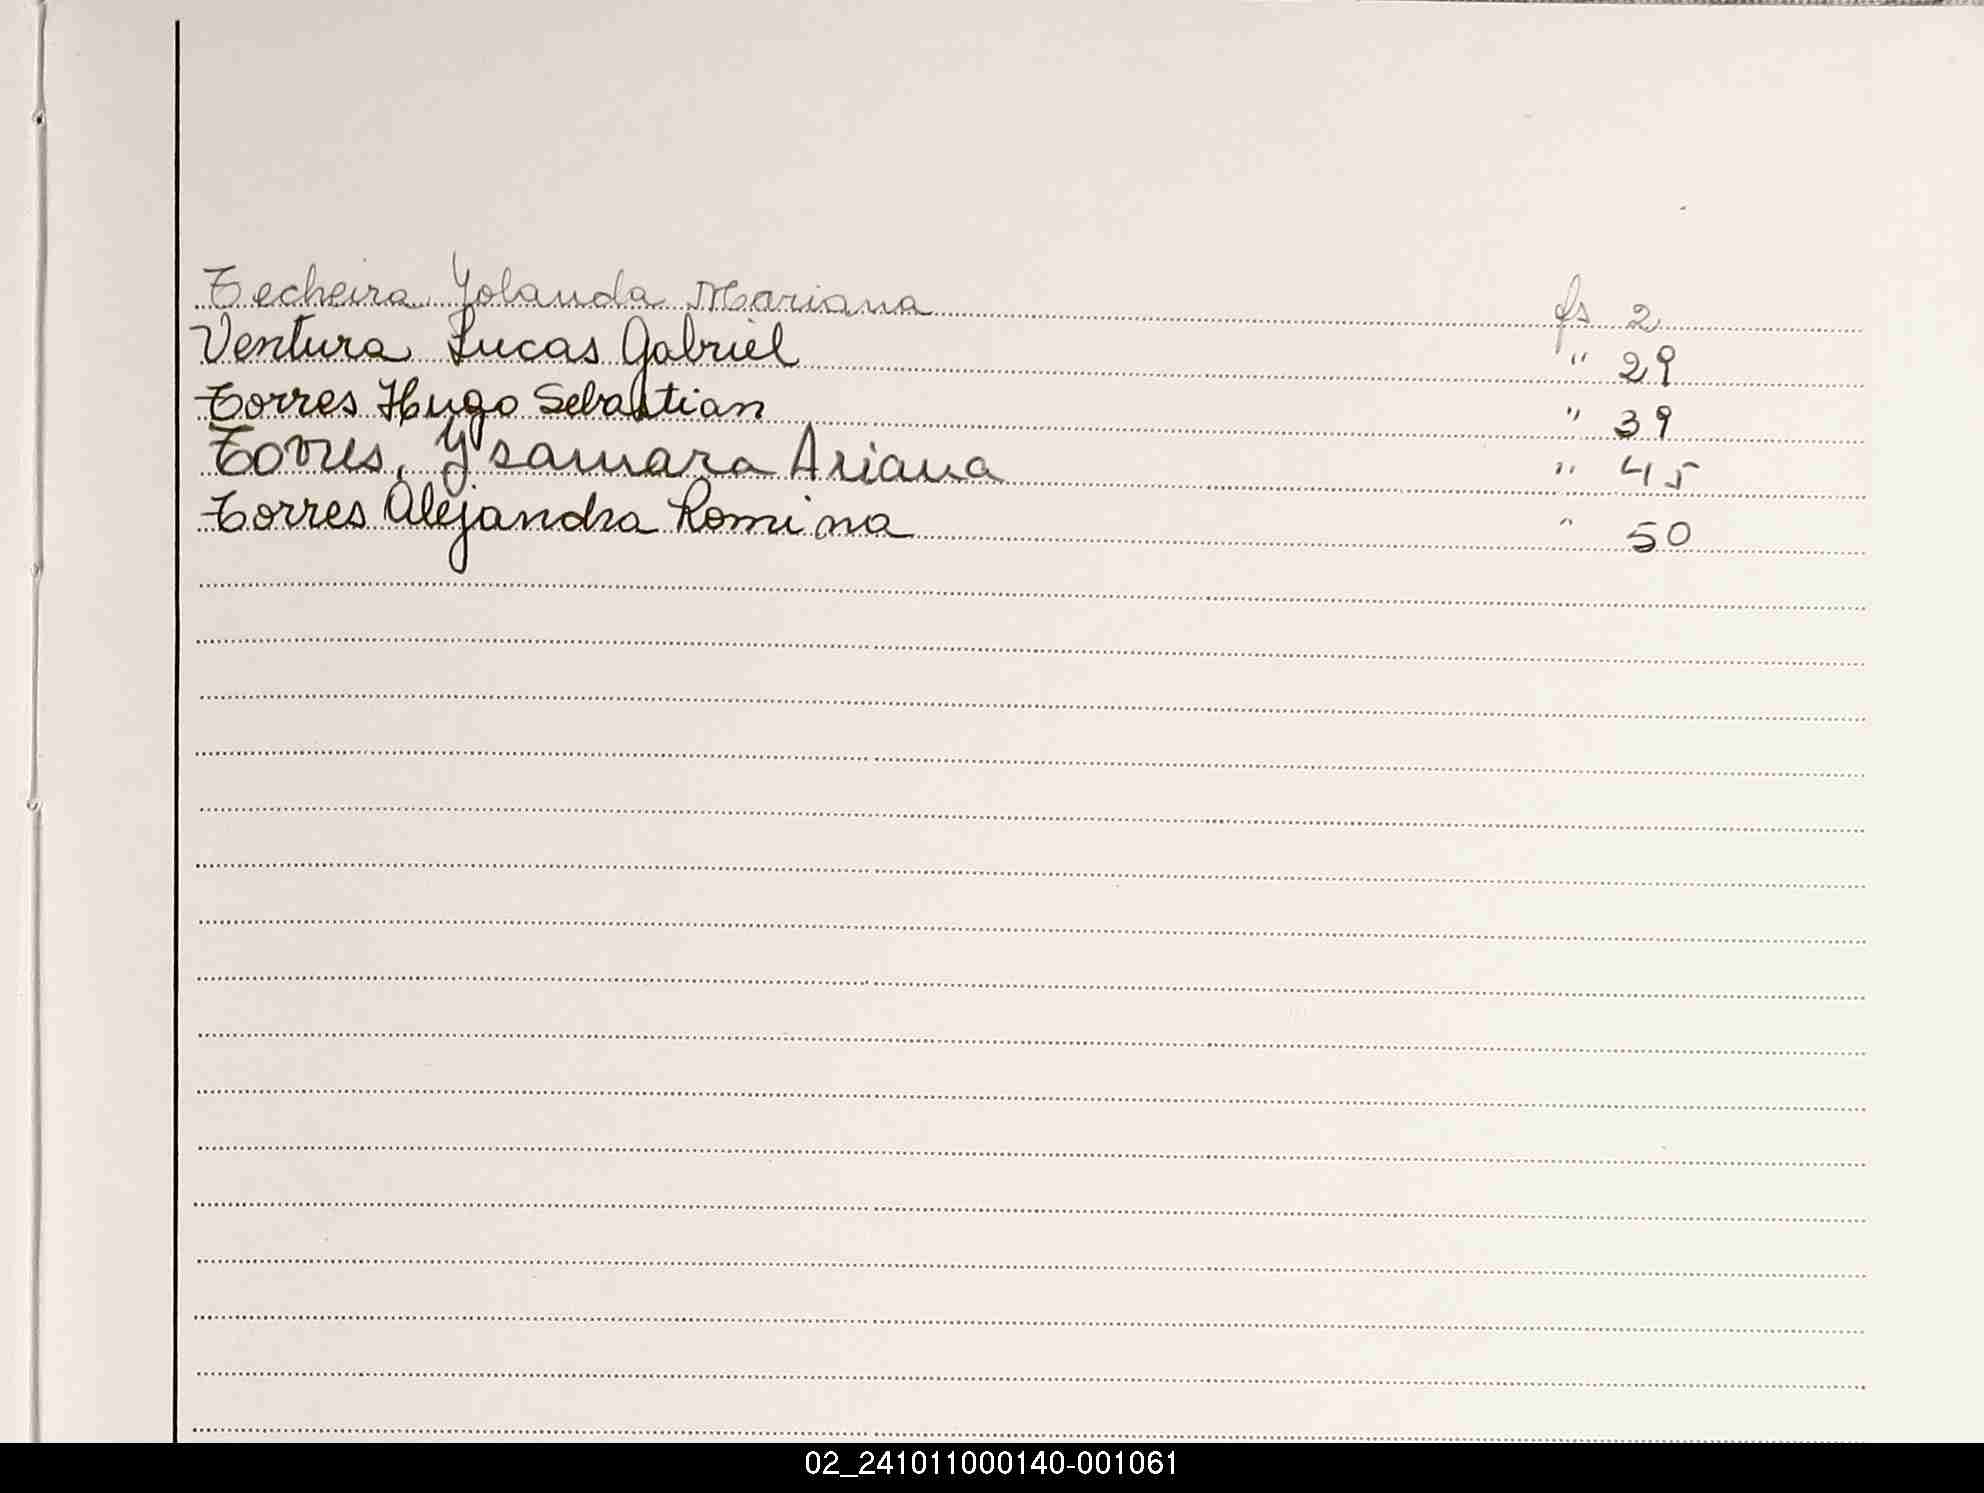 Techeira Yolanda Mariana fs 2
Ventura Lucas Gabriel " 29
Torres Hugo Sebastian " 39
Torres, Ysamara Ariana " 45
Torres Alejandra Romina " 50
02_241011000140-001061